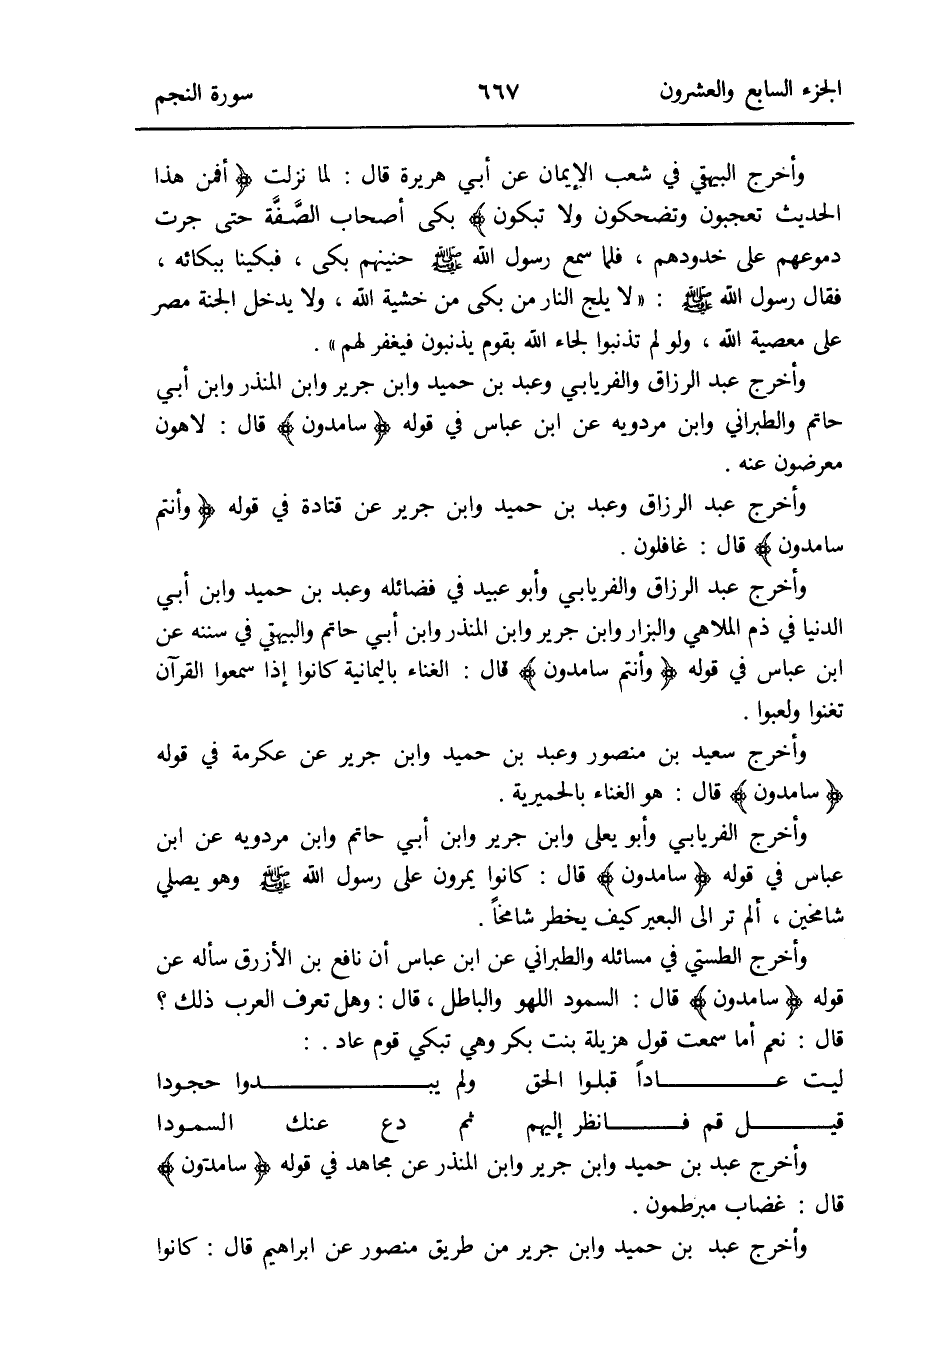 الجزء السابع والعشرون ٦٦٧ سورة النجم
وأخرج البيهقي في شعب الإيمان عن أبي هريرة قال : لما نزلت ﴿ أفمن هذا
الحديث تعجبون وتضحكون ولا تبكون ﴾ بكى أصحاب الصَّفَّة حتى جرت
دموعهم على خدودهم ، فلما سمع رسول الله ﷺ حنينهم بكى ، فبكينا ببكائه ،
فقال رسول الله ﷺ : « لا يلج النار من بكى من خشية الله ، ولا يدخل الجنة مصر
على معصية الله ، ولو لم تذنبوا لجاء الله بقوم يذنبون فيغفر لهم » .
وأخرج عبد الرزاق والفريابي وعبد بن حميد وابن جرير وابن المنذر وابن أبي
حاتم والطبراني وابن مردويه عن ابن عباس في قوله ﴿ سامدون ﴾ قال : لاهون
معرضون عنه .
وأخرج عبد الرزاق وعبد بن حميد وابن جرير عن قتادة في قوله ﴿ وأنتم
سامدون ﴾ قال : غافلون .
وأخرج عبد الرزاق والفريابي وأبو عبيد في فضائله وعبد بن حميد وابن أبي
الدنيا في ذم الملاهي والبزار وابن جرير وابن المنذر وابن أبي حاتم والبيهقي في سننه عن
ابن عباس في قوله ﴿ وأنتم سامدون ﴾ قال : الغناء باليمانية كانوا إذا سمعوا القرآن
تغنوا ولعبوا .
وأخرج سعيد بن منصور وعبد بن حميد وابن جرير عن عكرمة في قوله
﴿ سامدون ﴾ قال : هو الغناء بالحميرية .
وأخرج الفريابي وأبو يعلى وابن جرير وابن أبي حاتم وابن مردويه عن ابن
عباس في قوله ﴿ سامدون ﴾ قال : كانوا يمرون على رسول الله ﷺ وهو يصلي
شامخين ، ألم تر الى البعير كيف يخطر شامخاً .
وأخرج الطستي في مسائله والطبراني عن ابن عباس أن نافع بن الأزرق سأله عن
قوله ﴿ سامدون ﴾ قال : السمود اللهو والباطل ، قال : وهل تعرف العرب ذلك ؟
قال : نعم أما سمعت قول هزيلة بنت بكر وهي تبكي قوم عاد . :
ليت عـــاداً قبلوا الحق ولم يبـــدوا حجودا
قيـــل قم فـــانظر إليهم ثم دع عنك السمودا
وأخرج عبد بن حميد وابن جرير وابن المنذر عن مجاهد في قوله ﴿ سامدون ﴾
قال : غضاب مبرطمون .
وأخرج عبد بن حميد وابن جرير من طريق منصور عن ابراهيم قال : كانوا